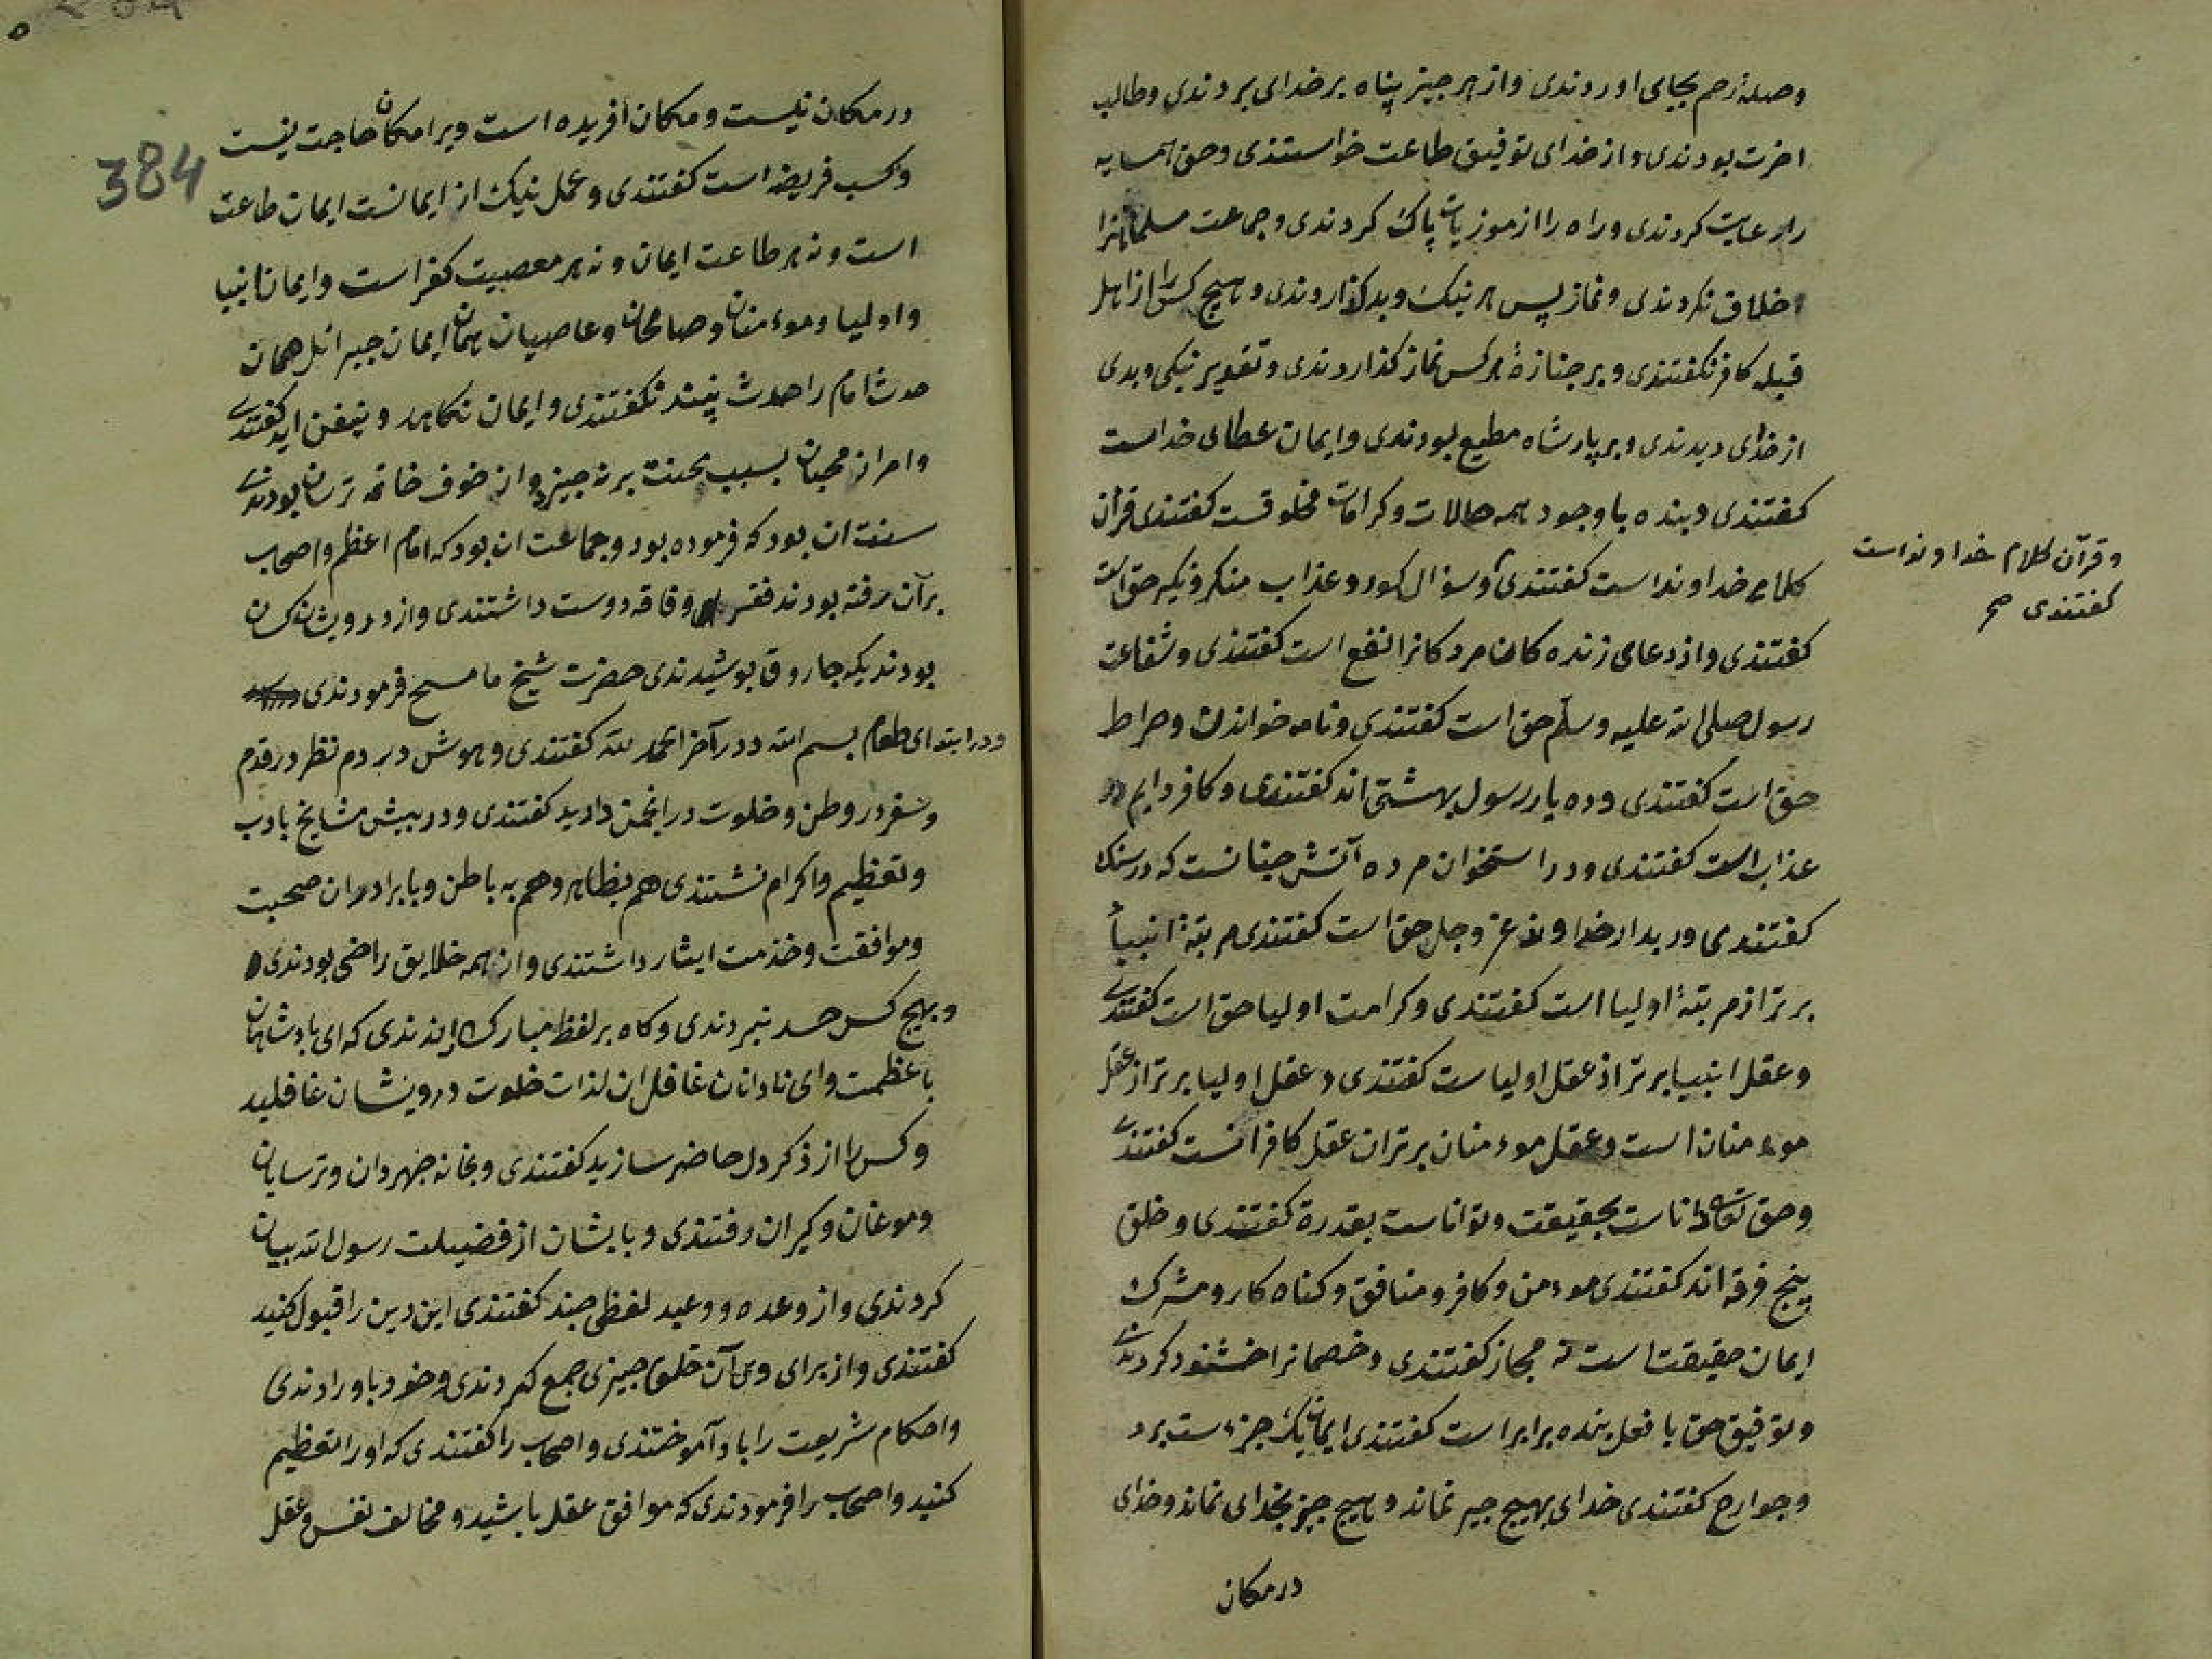 وصلهٔ رحم بجای اوردندی واز هر چیز پناه بر خدای بردندی وطالب
اخرت بودندی واز خدای توفیق طاعت خواستندی وحق همسایه
را رعایت کردندی وراه را از موزیات پاک کردندی وجماعت مسلمانانرا
خلاف نکردندی ونماز پس هر نیک وبد گذاردندی وهیچ کس را از اهل
قبله کافر نگفتندی وبر جنازهٔ هر کس نماز گذاردندی وتقدیر نیکی وبدی
از خدای دیدندی وبر پادشاه مطیع بودندی وایمان عطای خداست
گفتندی وبنده باوجود همه حالات وکرامات مخلوقست گفتندی قرآن
کلام خداونداست گفتندی وسؤال گور وعذاب منکر ونکیر حق است
وقرآن کلام خداونداست
گفتندی صح
گفتندی واز دعای زنده کان مردکانرا نفع است گفتندی وشفاعت
رسول صلی الله علیه وسلم حق است گفتندی ونامه خواندن وصراط
حق است گفتندی وده یار رسول بهشتی اند گفتندی وکافر دایم در
عذاب است گفتندی ودر استخوان مرده آتش چنانست که در سنگ
گفتندی ودیدار خداوند عز وجل حق است گفتندی مرتبهٔ انبیأ
برتر از مرتبهٔ اولیا است گفتندی وکرامت اولیا حق است گفتندی
وعقل انبیا برتر از عقل اولیاست گفتندی وعقل اولیا برتر از عقل
موءمنان است وعقل موءمنان برتر از عقل کافرانست گفتندی
وحق تعالی داناست بحقیقت وتواناست بقدرة گفتندی وخلق
پنج فرقه اند گفتندی موءمن وکافر ومنافق وگناه کار ومشرک
ایمان حقیقت است نه مجاز گفتندی وخصمانرا خشنود کردندی
وتوفیق حق با فعل بنده برابر است گفتندی ایمان یک جزء ست بر دل
وجوارح گفتندی خدای بهیچ چیز نماند وهیچ چیز بخدای نماند وخدای
در مکان
384
در مکان نیست ومکان آفریده است ویرا مکان حاجت نیست
وکسب فریضه است گفتندی وعمل نیک از ایمانست ایمان طاعت
است ونه هر طاعت ایمان ونه هر معصیت کفر است وایمان انبیا
واولیا وموءمنان وصالحان وعاصیان همان ایمان جبرائیل همان
حدث امام را حدث نگفتندی وایمان نکاهد ونیفزاید گفتندی
وامر از محبان بسبب محنت بر نه چیز واز خوف خاتمه ترسان بودندی
سنت ان بود که فرموده بود وجماعت ان بود که امام اعظم واصحاب
برآن رفته بودند فقر وفاقه دوست داشتندی واز درویشان
بودند یکه جاروقا پوشیدندی حضرت شیخ ما مسح فرمودندی
ودر ابتدای طعام بسم الله ودر آخر الحمد لله گفتندی وهوش در دم نظر در قدم
وسفر در وطن وخلوت در انجمن دارید گفتندی ودر پیش مشایخ بادب
وتعظیم واکرام نشستندی هم بظاهر وهم به باطن وبا برادران صحبت
وموافقت وخدمت ایثار داشتندی واز همه خلایق راضی بودندی
وبهیچ کس حسد نبردندی وگاه بر لفظ مبارک راندندی که ای پادشاهان
باعظمت وای نادانان غافل از لذات خلوت درویشان غافلید
وکس را از ذکر دل حاضر سازید گفتندی وبخانه جهودان وترسایان
وموغان وگبران رفتندی وبایشان از فضیلت رسول الله بیان
کردندی واز وعده ووعید لفظی چند گفتندی این دین را قبول کنید
گفتندی واز برای وی آن خلق چیزی جمع کردندی وخود باو دادندی
واحکام شریعت را باو آموختندی واصحاب را گفتندی که او را تعظیم
کنید واصحاب را فرمودندی که موافق عقل باشید ومخالف نفس وعقل